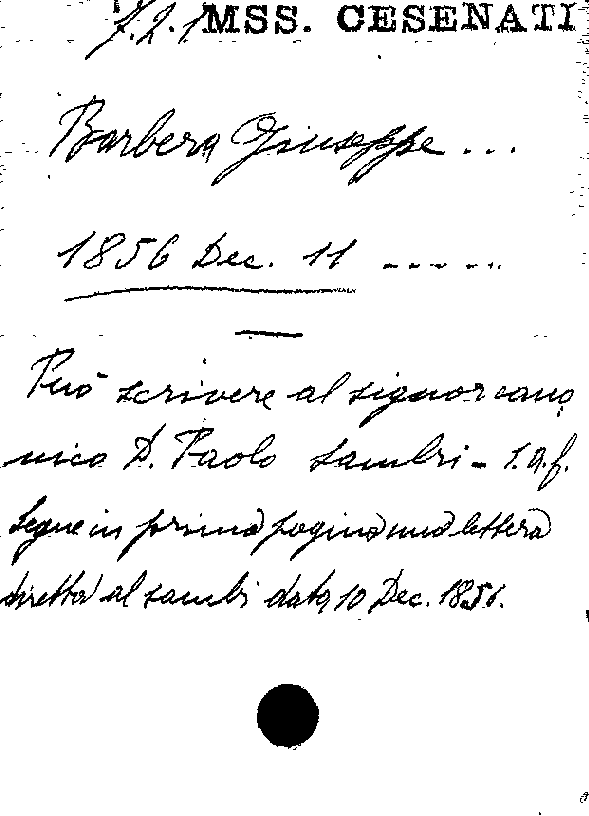 f. 2. 1 MSS. CESENATI
Barbera Giuseppe ...
1856 Dec. 11 .....
Può scrivere al signor cano
nico D. Paolo Sambri - 1. a. f.
Segue in prima pagina una lettera
diretta al Sambri data 10 Dec. 1856.